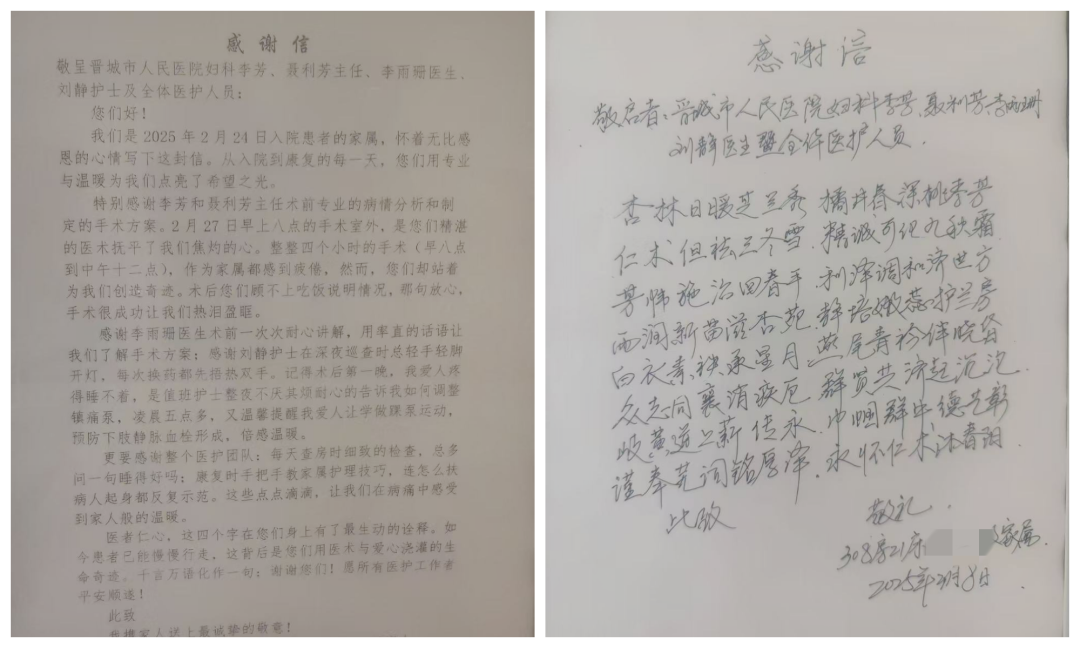 感谢信
敬呈晋城市人民医院妇科李芳、聂利芳主任、李雨珊医生、
刘静护士及全体医护人员：
您们好！
我们是2025年2月24日入院患者的家属，怀着无比感
恩的心情写下这封信。从入院到康复的每一天，您们用专业
与温暖为我们点亮了希望之光。
特别感谢李芳和聂利芳主任术前专业的病情分析和制
定的手术方案。2月27日早上八点的手术室外，是您们精湛
的医术抚平了我们焦灼的心。整整四个小时的手术（早八点
到中午十二点），作为家属都感到疲倦，然而，您们却站着
为我们创造奇迹。术后您们顾不上吃饭说明情况，那句放心，
手术很成功让我们热泪盈眶。
感谢李雨珊医生术前一次次耐心讲解，用率直的话语让
我们了解手术方案；感谢刘静护士在深夜巡查时总轻手轻脚
开灯，每次换药都先捂热双手。记得术后第一晚，我爱人疼
得睡不着，是值班护士整夜不厌其烦耐心的告诉我如何调整
镇痛泵，凌晨五点多，又温馨提醒我爱人让学做踝泵运动，
预防下肢静脉血栓形成，倍感温暖。
更要感谢整个医护团队：每天查房时细致的检查，总多
问一句睡得好吗；康复时手把手教家属护理技巧，连怎么扶
病人起身都反复示范。这些点点滴滴，让我们在病痛中感受
到家人般的温暖。
医者仁心，这四个字在您们身上有了最生动的诠释。如
今患者已能慢慢行走，这背后是您们用医术与爱心浇灌的生
命奇迹。千言万语化作一句：谢谢您们！愿所有医护工作者
平安顺遂！
此致
我携家人送上最诚挚的敬意！
感谢信
敬启者：晋城市人民医院妇科李芳、聂利芳、李雨珊
刘静医生暨全体医护人员．
杏林日暖芝兰秀 橘井春深桃李芳
仁术但祛三冬雪．精诚可化九秋霜
芳怖施治回春手．利泽调和济世方
雨润新苗滋杏苑．静培嫩蕊护兰房
白衣素袂承星月 燕尾青衫伴晓昏
众志同襄消疾厄 群贤共济起沉疴
岐黄道上薪传永．巾帼群中德艺彰
谨奉芜词铭厚泽．永怀仁术沐春阳
此致
敬礼．
308房21床 家属．
2025年3月8日．